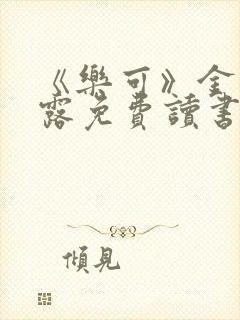 《樂可》金
露免費讀書
傾見